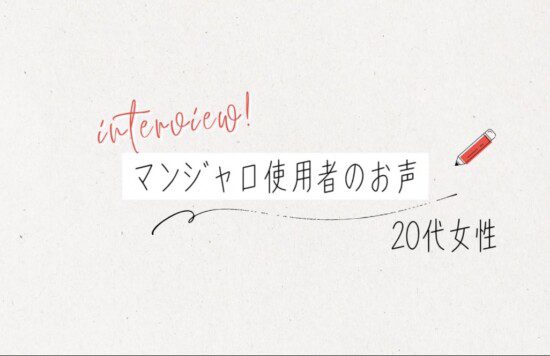 interview!
マンジャロ使用者のお声
20代女性